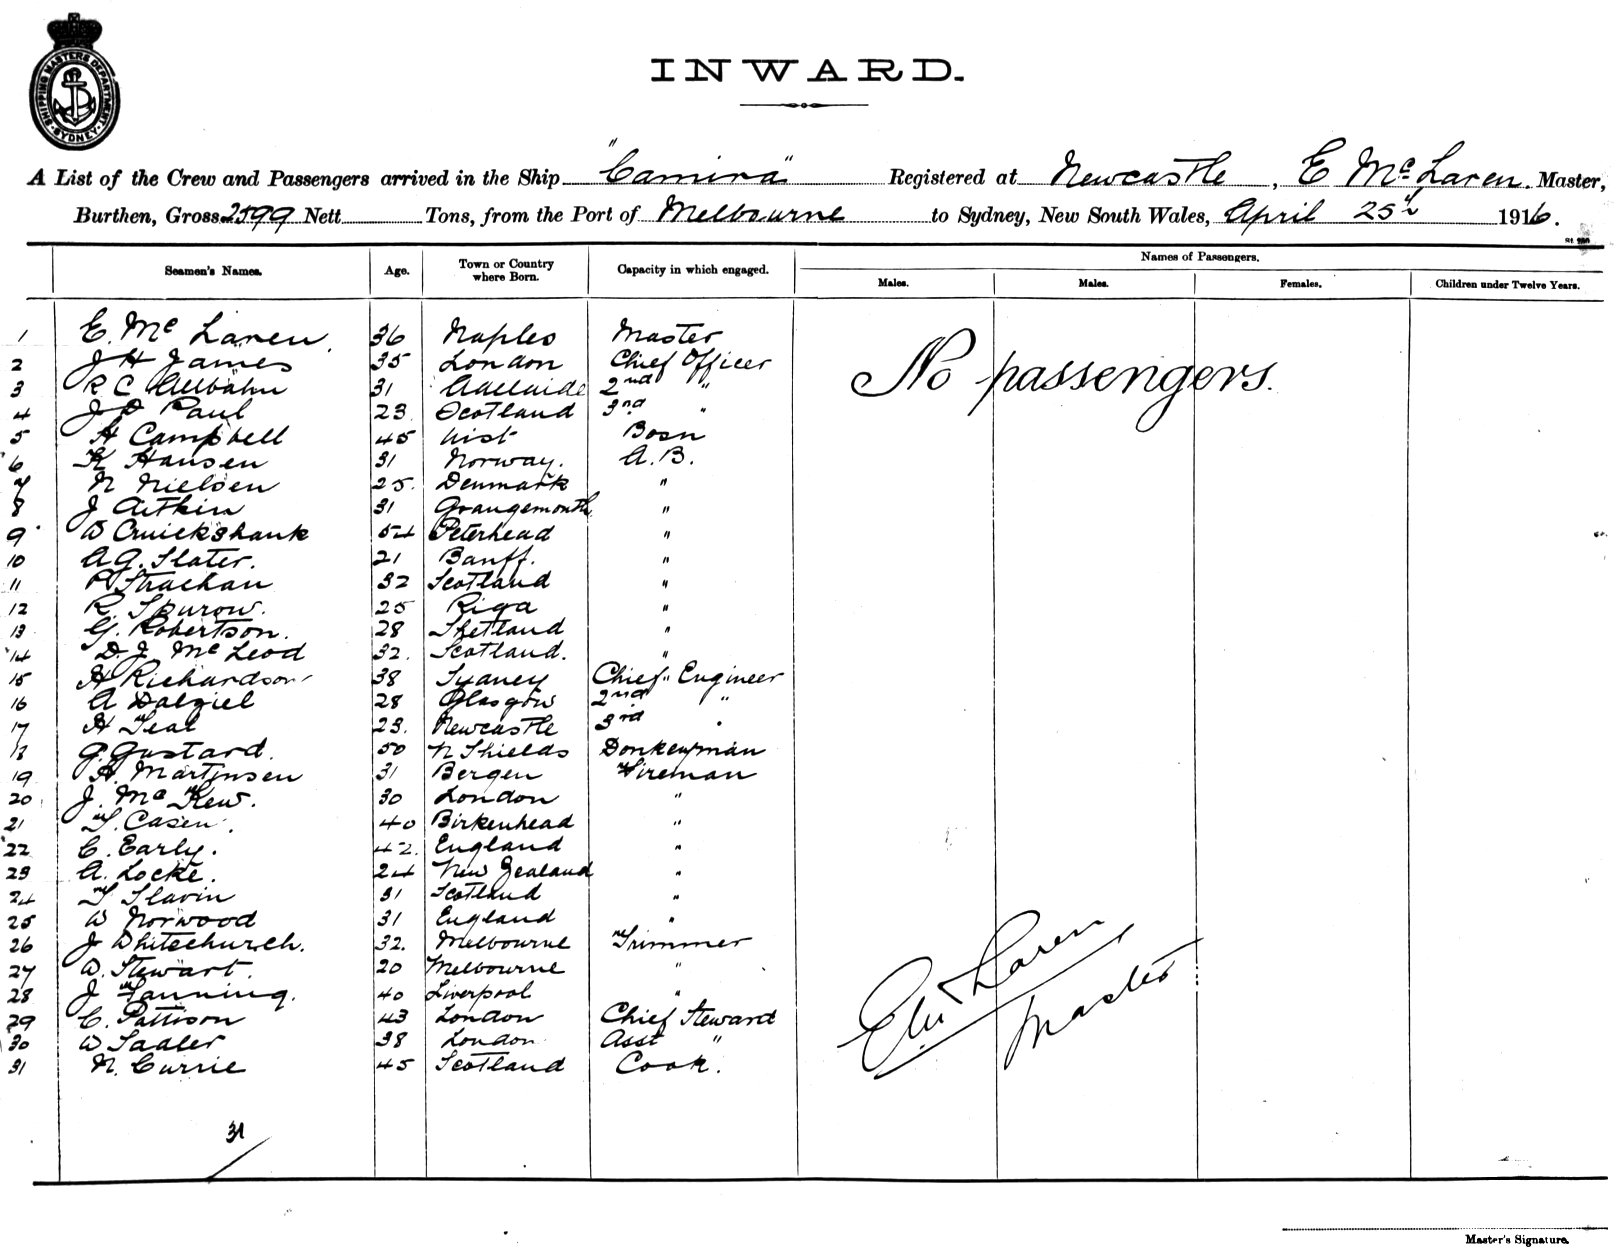 SHIPPING MASTERS DEPARTMENT
SYDNEY
INWARD.
A List of the Crew and Passengers arrived in the Ship "Camira" Registered at Newcastle, E McLaren. Master,
Burthen, Gross 2599 Nett Tons, from the Port of Melbourne to Sydney, New South Wales, April 25th 1916.
Seamen's Names. Age. Town or Country where Born. Capacity in which engaged. Names of Passengers.
Males. Males. Females. Children under Twelve Years.
1 E. Mc Laren. 36 Naples Master
2 J H James 35 London Chief Officer
3 R C Allbahn 31 Adelaide 2nd "
4 J Paul 23 Scotland 3rd "
No passengers.
5 H Campbell 45 Uist Bosn
6 K Hansen 31 Norway. A.B.
7 N Nielsen 25. Denmark "
8 J Aitkin 31 Grangemouth "
9 W Cruickshank 54 Peterhead "
10 A.G. Slater. 21 Banff. "
11 P Strachan 32 Scotland "
12 R. Spurow. 25 Riga "
13 G. Robertson. 28 Shetland "
14 D. J. Mc Leod 32. Scotland. "
15 H Richardson 38 Sydney Chief Engineer
16 A Dalziel 28 Glasgow 2nd "
17 H Teal 23. Newcastle 3rd "
18 G. Gustard. 50 N Shields Donkeyman
19 H. Martinsen 31 Bergen Fireman
20 J. Mc Kew. 30 London "
21 T. Casen. 40 Birkenhead "
22 C. Early. 42. England "
23 A. Locke. 24 New Zealand "
24 T Slavin 31 Scotland "
25 W Norwood 31 England "
26 J Whitechurch. 32. Melbourne Trimmer
27 W. Stewart. 20 Melbourne "
28 J Fanning. 40 Liverpool "
29 C. Pattison 43 London Chief Steward
30 W Sadler 38 London Asst "
31 N. Currie 45 Scotland Cook.
E Mc Laren
Master
31
Master's Signature.